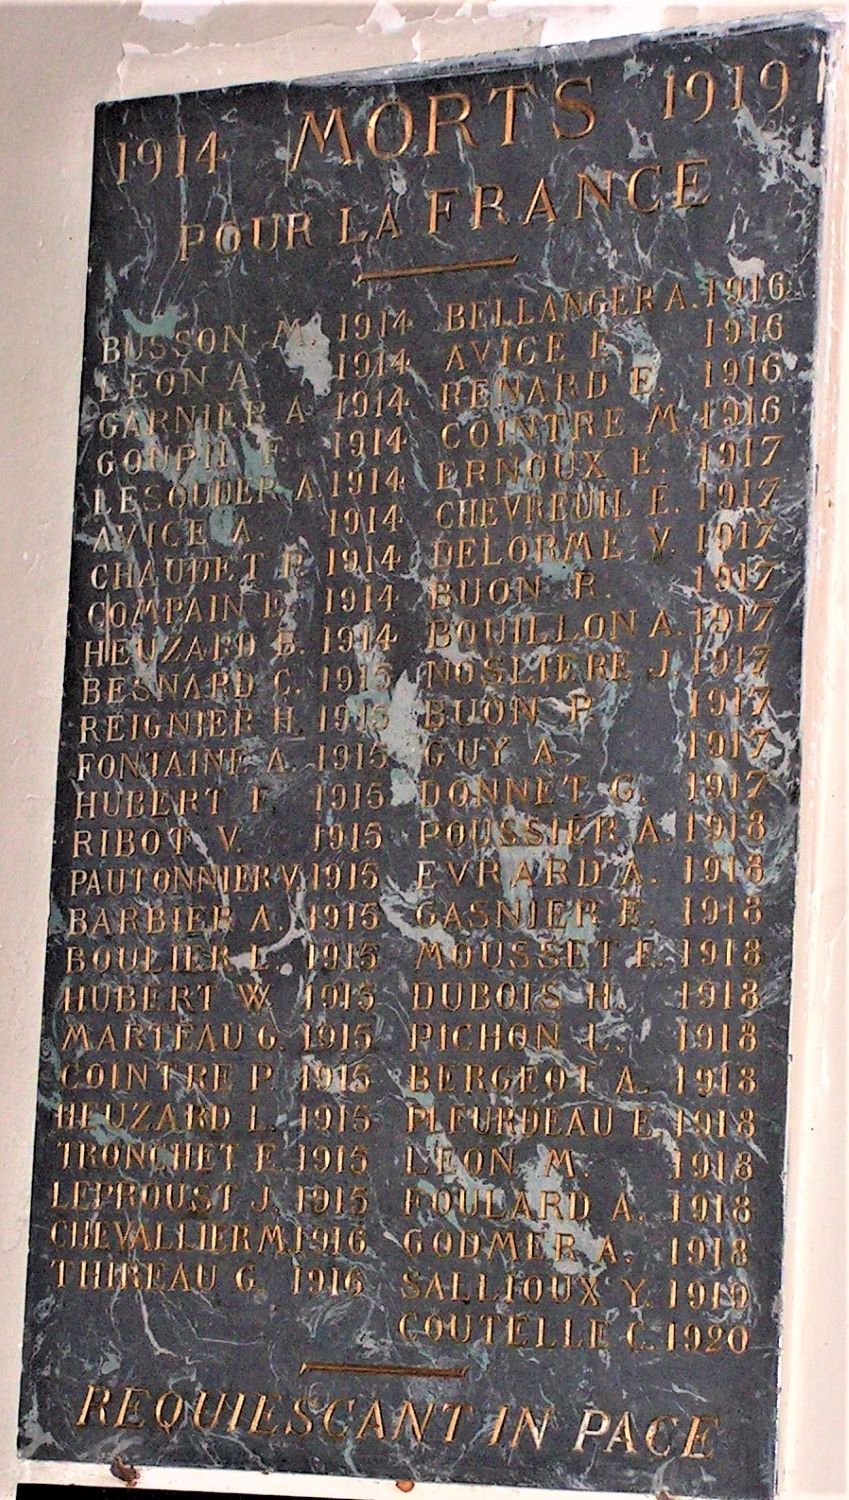 1914 MORTS 1919
POUR LA FRANCE
BUSSON M. 1914
LEON A. 1914
GARNIER A. 1914
GOUPIL F. 1914
LESOUDER A. 1914
AVICE A. 1914
CHAUDET 1914
COMPAIN E. 1914
HEUZARD B. 1914
BESNARD C. 1915
REIGNIER H. 1915
FONTAINE A. 1915
HUBERT F. 1915
RIBOT V. 1915
PAUTONNIER V. 1915
BARBIER A. 1915
BOULIER L. 1915
HUBERT W. 1915
MARTEAU G. 1915
COINTRE P. 1915
HEUZARD L. 1915
TRONCHET E. 1915
LEPROUST J. 1915
CHEVALLIER M. 1916
THIREAU G. 1916
BELLANGER A. 1916
AVICE 1916
RENARD E. 1916
COINTRE M. 1916
ERNOUX E. 1917
CHEVREUIL E. 1917
DELORME V. 1917
BUON R. 1917
BOUILLON A. 1917
NOSLIERE J. 1917
BUON P. 1917
GUY A. 1917
DONNET G. 1917
POUSSIER A. 1918
EVRARD A. 1918
GASNIER E. 1918
MOUSSET E. 1918
DUBOIS H. 1918
PICHON L. 1918
BERGEOT A. 1918
PLEURDEAU E. 1918
LEON M. 1918
FOULARD A. 1918
GODMER A. 1918
SALLIOUX Y. 1919
COUTELLE C. 1920
REQUIESCANT IN PACE